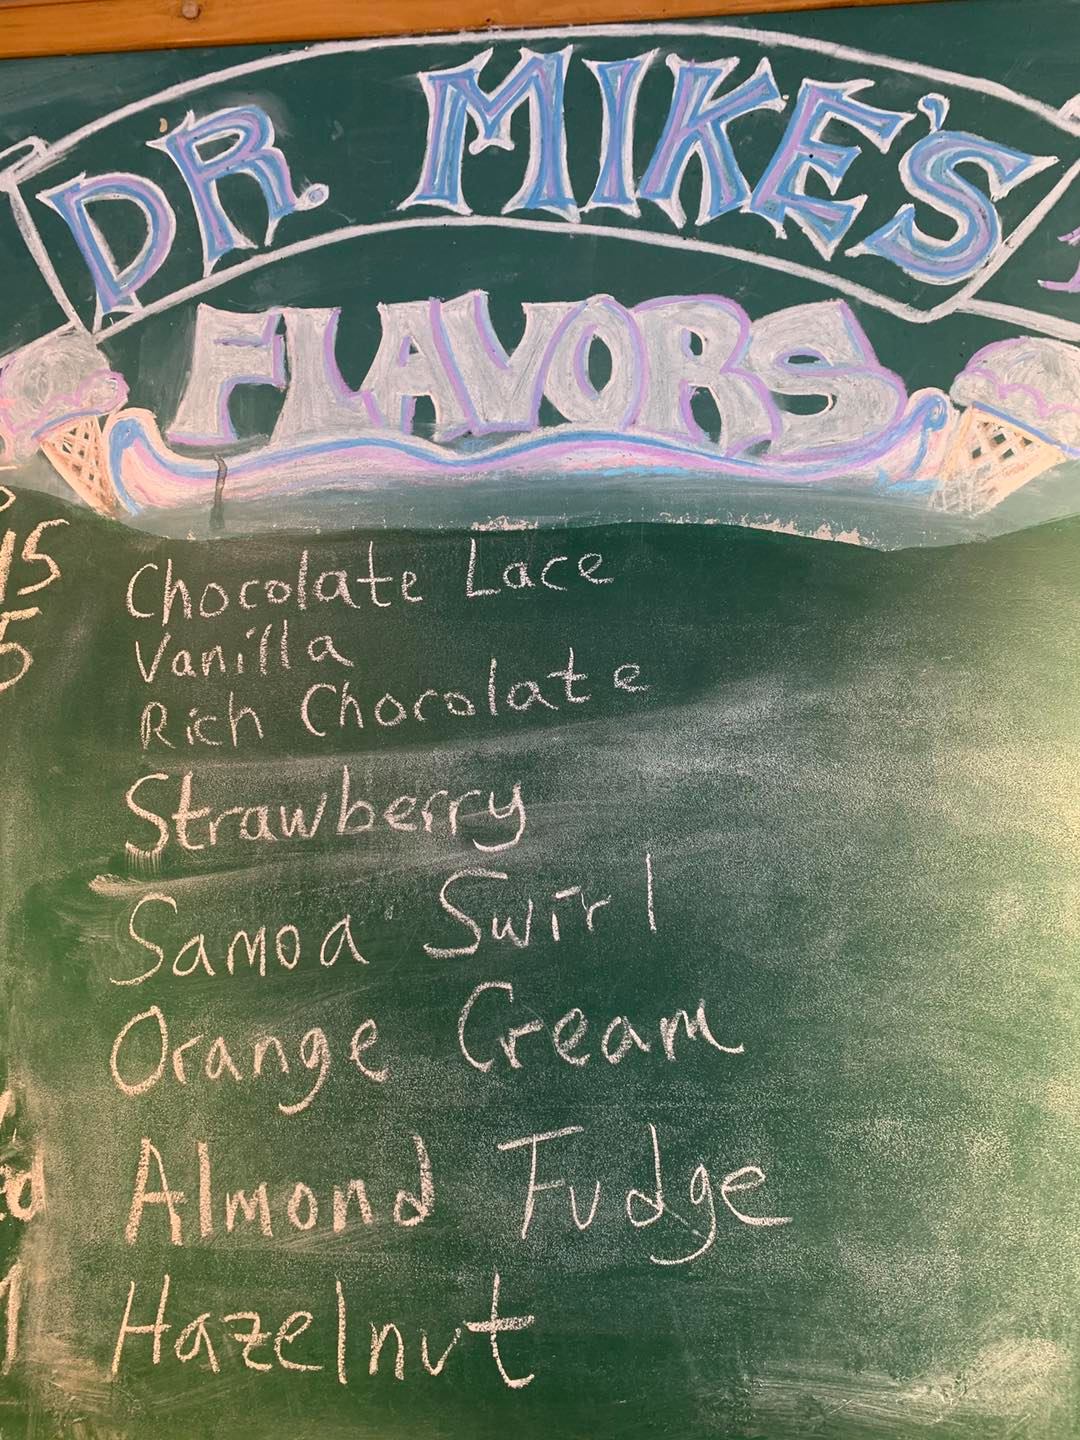 DR. MIKE'S
FLAVORS
15
5
Chocolate Lace
Vanilla
Rich Chocolate
Strawberry
Samoa Swirl
Orange Cream
Almond Fudge
Hazelnut